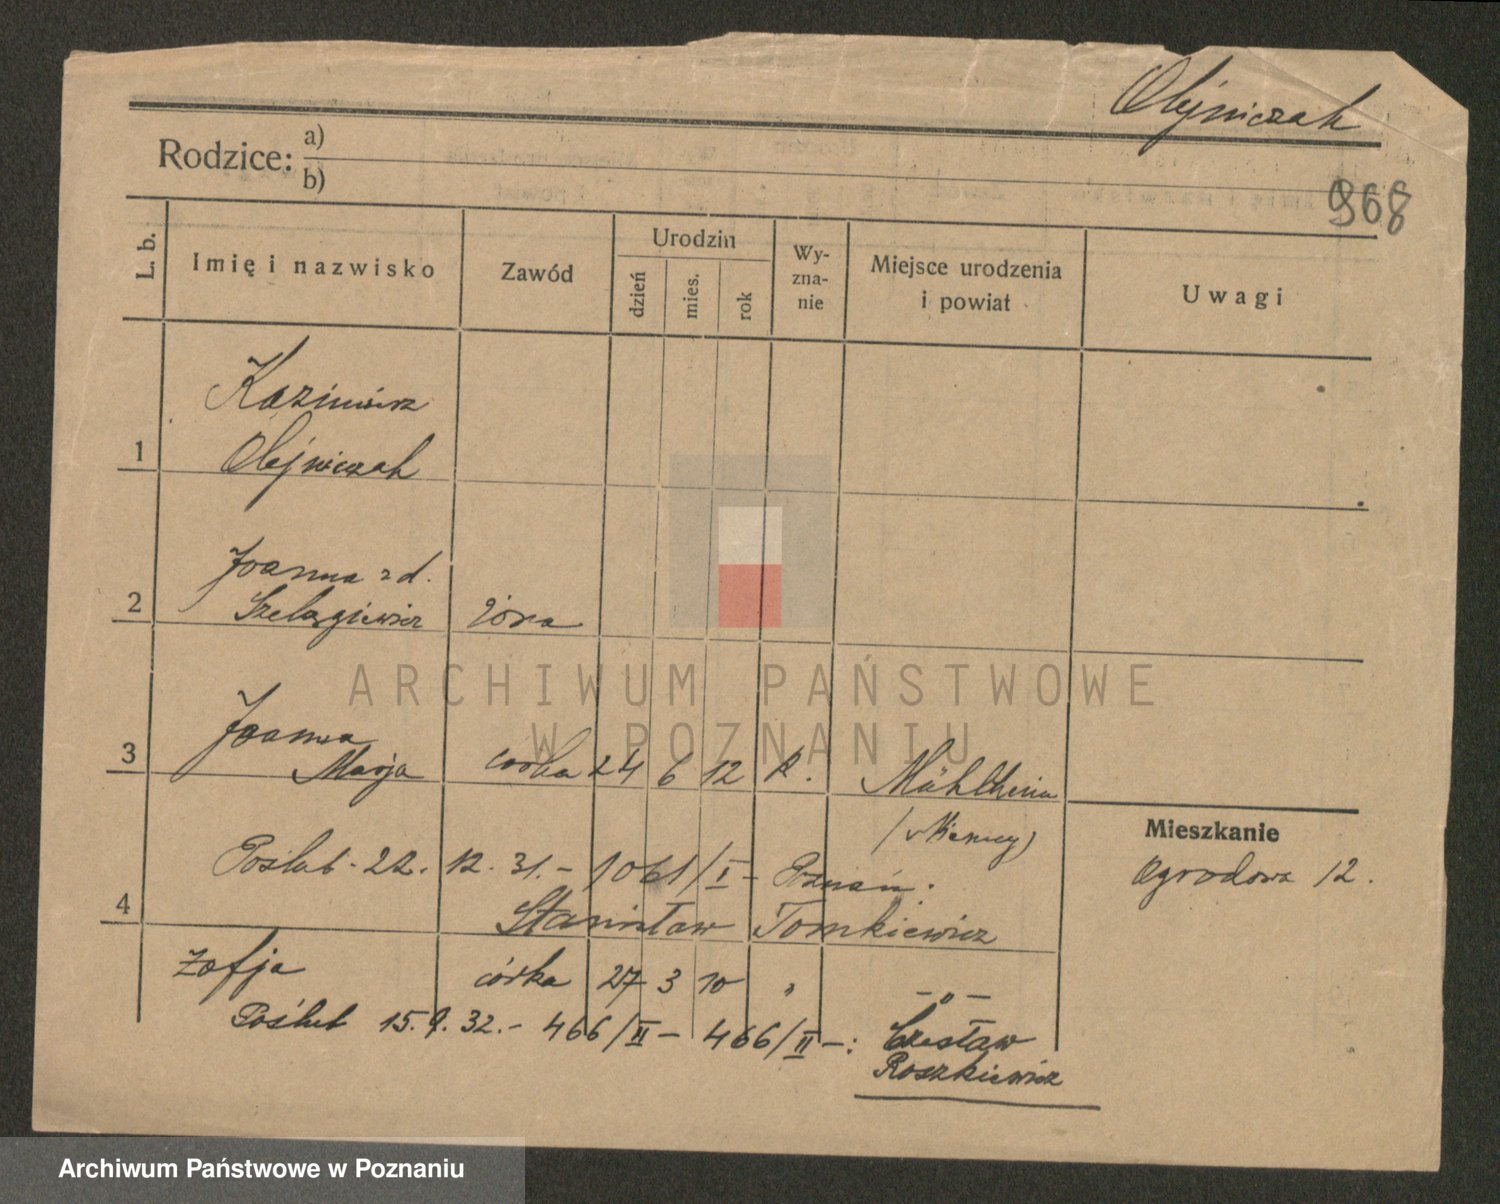 Olejniczak
Rodzice: a)
b)
968
L. b.
Imię i nazwisko
Zawód
Urodzin
dzień
mies.
rok
Wy-
zna-
nie
Miejsce urodzenia
i powiat
Uwagi
Kazimierz
1 Olejniczak
Joanna z d.
2 Szelągiewicz żona
Joanna
3 Marja córka 24 6 12 k. Mühlheim
(Niemcy)
Mieszkanie
Ogrodowa 12.
Poślub - 22. 12. 31. - 1061/I - Poznań.
4 Stanisław Tomkiewicz
Zofja córka 27 3 10 " - " -
Poślub 15. 9. 32. - 466/II - 466/II - : Czesław
Roszkiewicz
ARCHIWUM PAŃSTWOWE
W POZNANIU
Archiwum Państwowe w Poznaniu